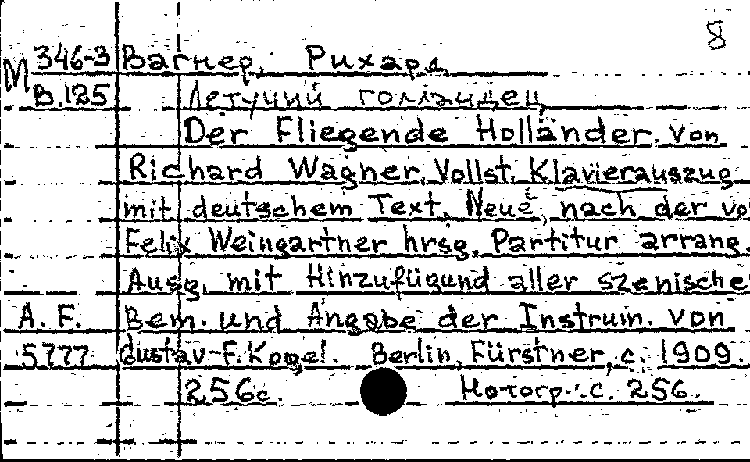 8
М 346-3 Вагнер, Рихард
В.125 Летучий голландец
Der Fliegende Holländer. Von
Richard Wagner. Vollst. Klavierauszug
mit deutschem Text. Neue, nach der vo
Felix Weingartner hrsg. Partitur arrang.
Ausg. mit Hinzufügund aller szenische
A. F. Bem. und Angabe der Instrum. von
5777 Gustav-F. Kogel. Berlin, Fürstner, c. 1909.
256c. Нотогр.: с. 256.